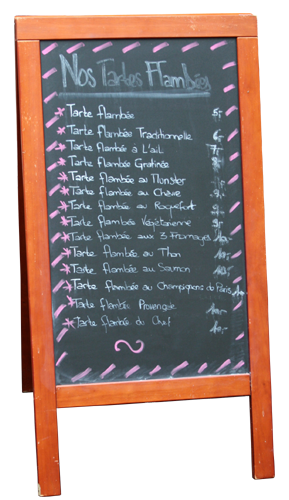 Nos Tartes Flambées
Tarte flambée 5,-
Tarte flambée Traditionnelle 6,-
Tarte flambée à L'ail 7,-
Tarte flambée Gratinée 8,-
Tarte flambée au Munster
Tarte flambée au Chèvre 9,-
Tarte flambée au Roquefort
Tarte flambés Végétarienne 9,-
Tarte flambée aux 3 Fromages 10,-
Tarte flambée au Thon 10,-
Tarte flambée au Saumon 10,-
Tarte flambée au Champignons de Paris 10
Tarte flambés Provençale 10,-
Tarte flambée du Chef 10,-